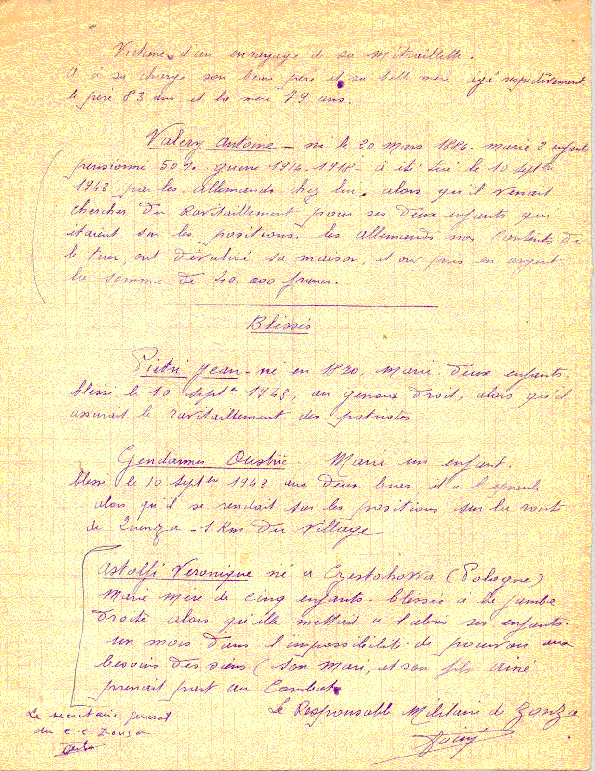 Victime d'un enrayage de sa mitraillette.
A à sa charge son beau père et sa belle mère agé respectivement
le père 83 ans et la mère 79 ans.
Valery Antoine - né le 20 Mars 1884. marié 2 enfants
pensionné 50% guerre 1914-1918 - à été tué le 10 Septbre
1943 par les allemands chez lui. alors qu'il venait
chercher du Ravitaillement pour ses deux enfants qui
étaient sur les positions. les allemands non contents de
le tuer, ont dévalisé sa maison, et ont pris en argent
la somme de 40.000 francs.
Blessés
Pietri Jean - né en 1890. Marié. deux enfants.
blessé le 10 Septbre 1943, au genoux droit, alors qu'il
assurait le ravitaillement des patriotes
Gendarme Oustric. Marié un enfant.
blessé le 10 Septbre 1943 aux deux
alors qu'il se rendait sur les positions sur la route
de Quenza - 1 Km du Village
Astolfi Veronique né a Czestohowa (Pologne)
Marié mère de cinq enfants. blessée à la jambe
droite alors qu'elle mettait à l'abri ses enfants.
un mois dans l'impossibilité de pourvoir aux
besoins des siens (son mari, et son fils ainé
prenait part au Combat.
Le Responsable Militaire de Zonza
Le secrétaire général
du C.C. Zonza